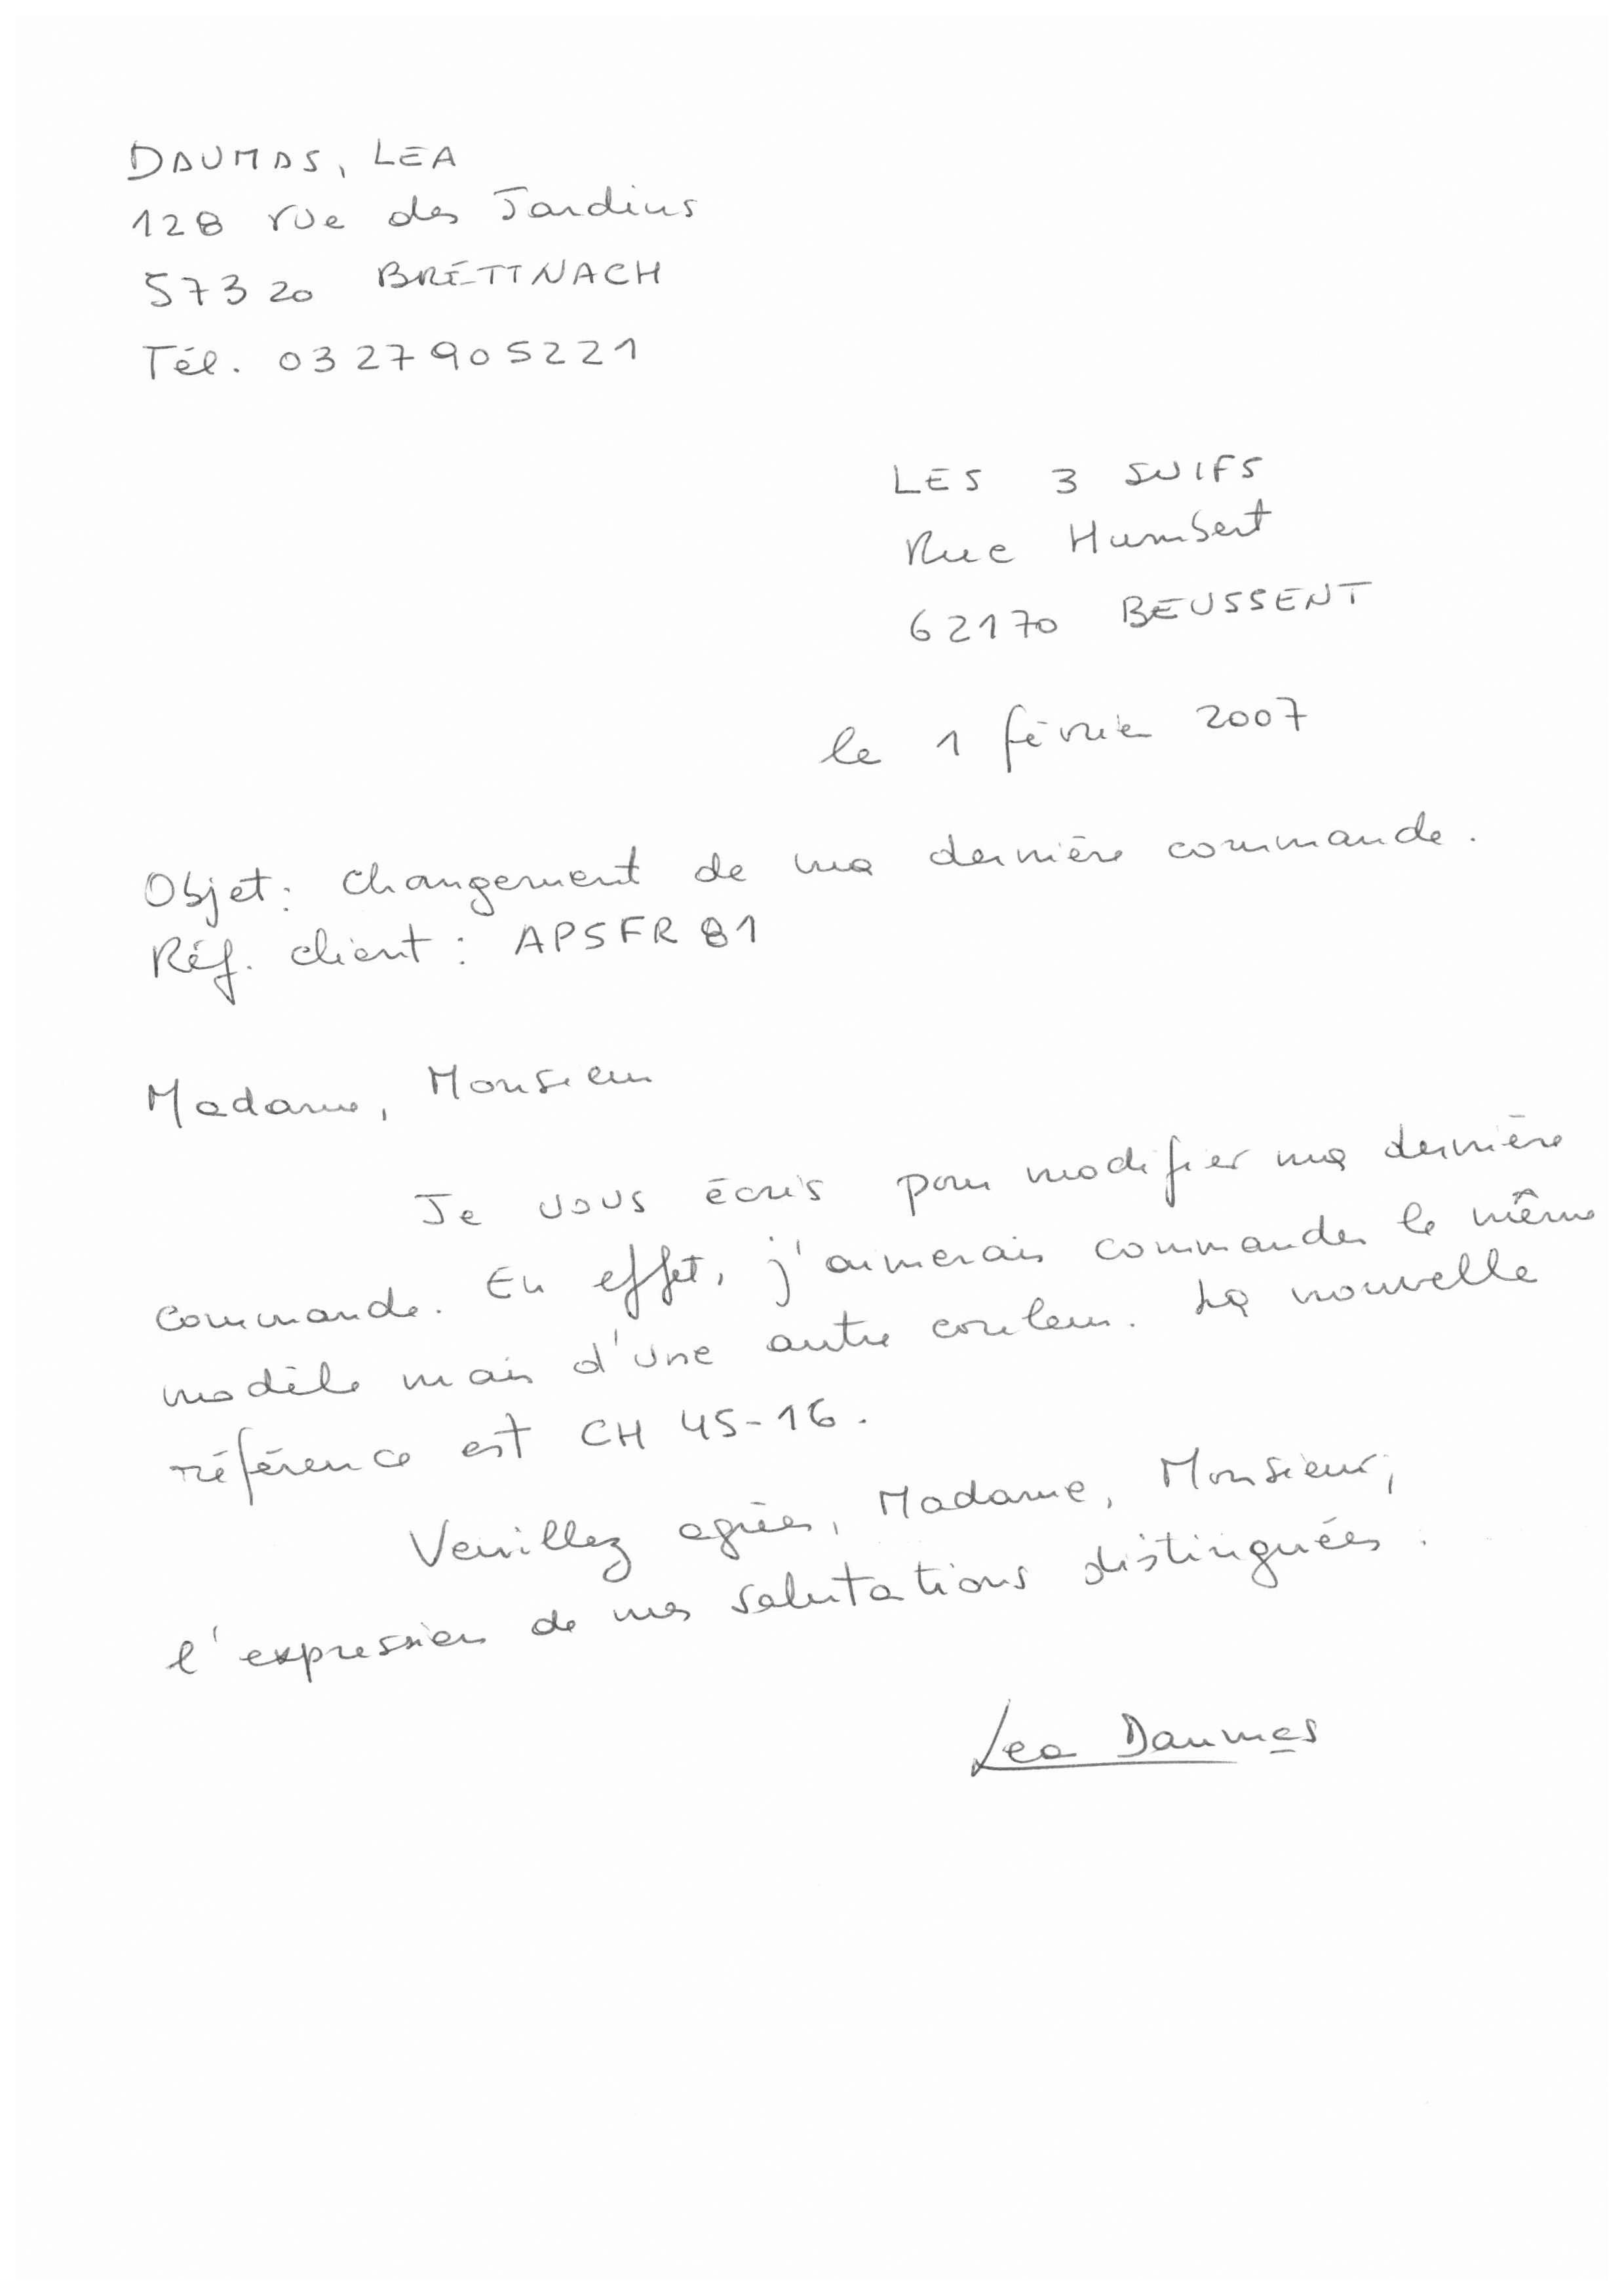 DAUMAS, LEA
128 rue des Jardins
57320 BRETTNACH
Tél. 0327905221
LES 3 SUIFS
Rue Humbert
62170 BEUSSENT
le 1 février 2007
Objet: changement de ma dernière commande.
Réf. client : APSFR81
Madame, Monsieur
Je vous écris pour modifier ma dernière
commande. En effet, j'aimerais commander le même
modèle mais d'une autre couleur. La nouvelle
référence est CH 45-16.
Veuillez agréer, Madame, Monsieur,
l'expression de mes salutations distinguées.
Lea Daumas